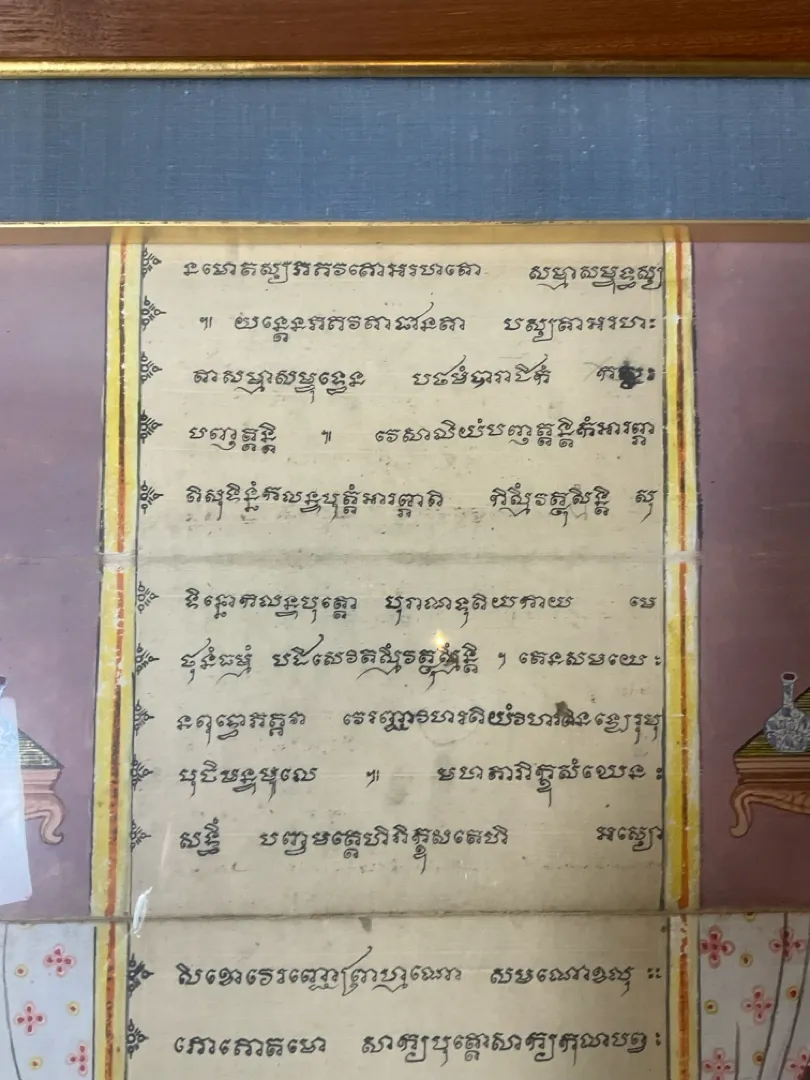 នមោតស្សភគវតោអរហតោ សម្មាសម្ពុទ្ធស្ស
៕ យន្តេនភគវតាជានតា បស្សតាអរហះ
តាសម្មាសម្ពុទ្ធេន បឋមំបារាជិកំ
បញ្ញត្តន្តិ ៕ វេសាលិយំបញ្ញត្តន្តិកំអារព្ភា
តិសុទិន្នំកលន្ទបុត្តំអារព្ភាតិ កិស្មឹវត្ថុស្មិន្តិ សុ
ទិន្នោកលន្ទបុត្តោ បុរាណទុតិយកាយ មេ
ថុនំធម្មំ បដិសេវិតស្មឹវត្ថុស្មិន្តិ ។ តេនសមយេះ
នពុទ្ធោភគវា វេរញ្ជាវិហរតិយំវិហារណនឡេរុបុ
បុចិមន្ទមូលេ ៕ មហតាភិក្ខុសំឃេនះ
សទ្ធឹ បញ្ចមត្តេហិភិក្ខុសតេហិ អស្សោ
សិខោវេរញ្ជោព្រាហ្មណោ សមណោខលុ ៈៈ
ភោគោតមោ សាក្យបុត្តោសាក្យកុលាបព្វៈ